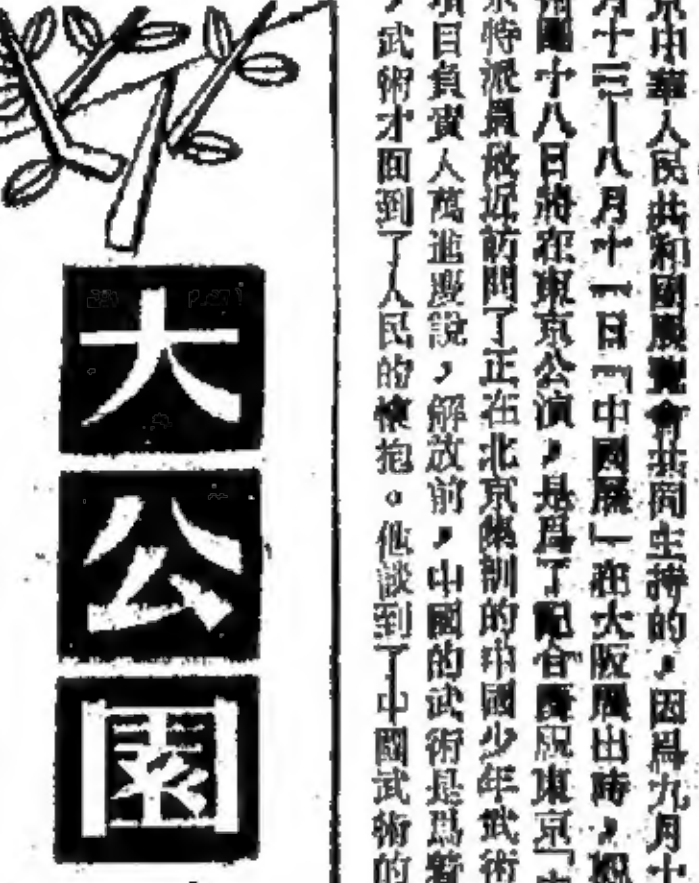 京中華人民共和國展覽會共同主持的，因爲九月十
月十三—八月十一日「中國展」在大阪展出時，
團十八日將在東京公演，是爲了配合東京「
京特派員最近訪問了正在北京集訓的中國少年武術
項目負責人萬進慶說，解放前，中國的武術是爲
，武術才回到了人民的懷抱。他談到了中國武術的
大公園